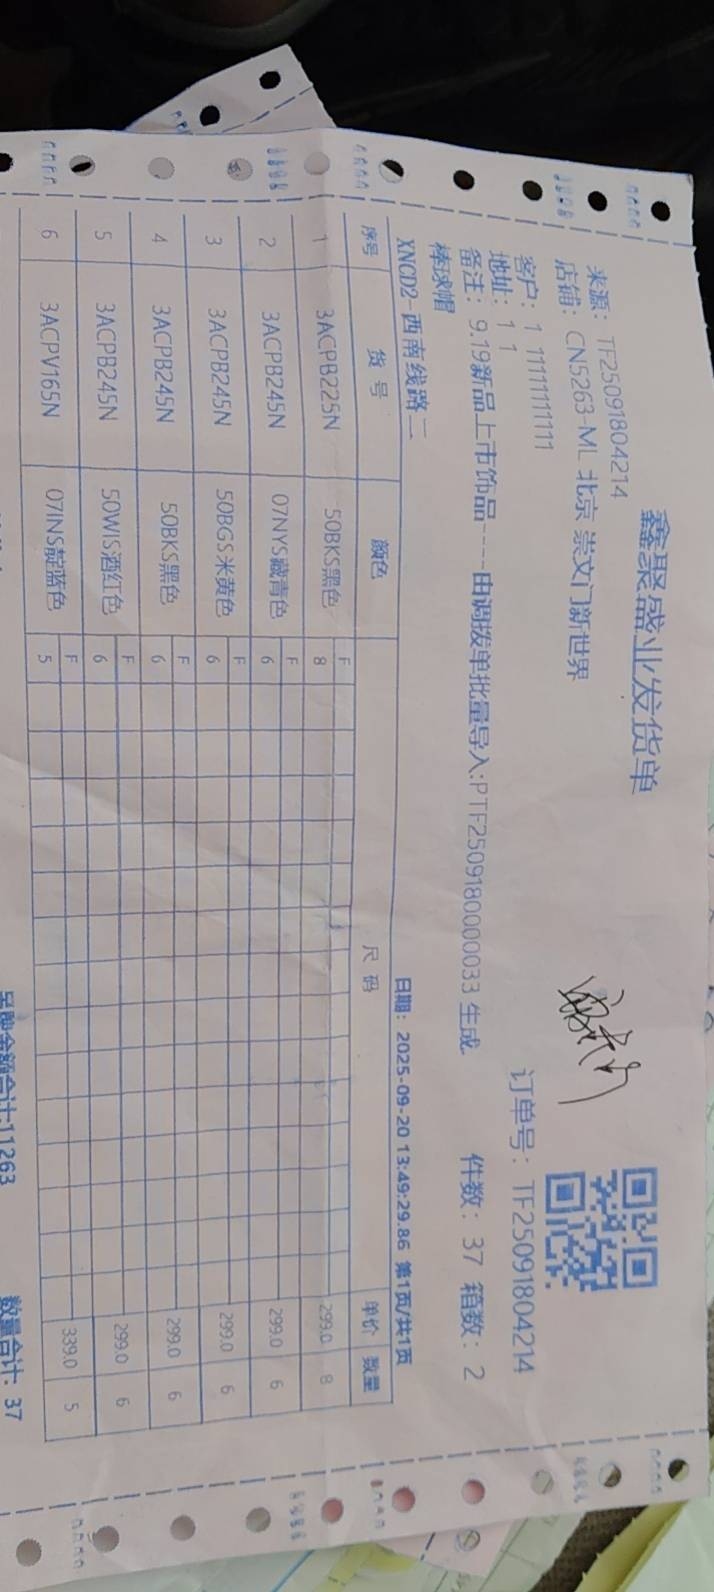 鑫聚盛业发货单
来源：TF25091804214
店铺：CN5263-ML 北京 崇文门新世界
订单号：TF25091804214
客户：1 11111111111
地址：1 1
件数：37 箱数：2
备注：9.19新品上市饰品----由调拨单批量导入:PTF2509180000033 生成.
棒球帽
XNCD2-西南线路二 日期：2025-09-20 13:49:29.86 第1页/共1页
序号 货号 颜色 尺码 单价 数量
1 3ACPB225N 50BKS黑色 F 8 299.0 8
2 3ACPB245N 07NYS藏青色 F 6 299.0 6
3 3ACPB245N 50BGS米黄色 F 6 299.0 6
4 3ACPB245N 50BKS黑色 F 6 299.0 6
5 3ACPB245N 50WIS酒红色 F 6 299.0 6
6 3ACPV165N 07INS靛蓝色 F 5 339.0 5
吊牌金额合计:11263 数量合计：37